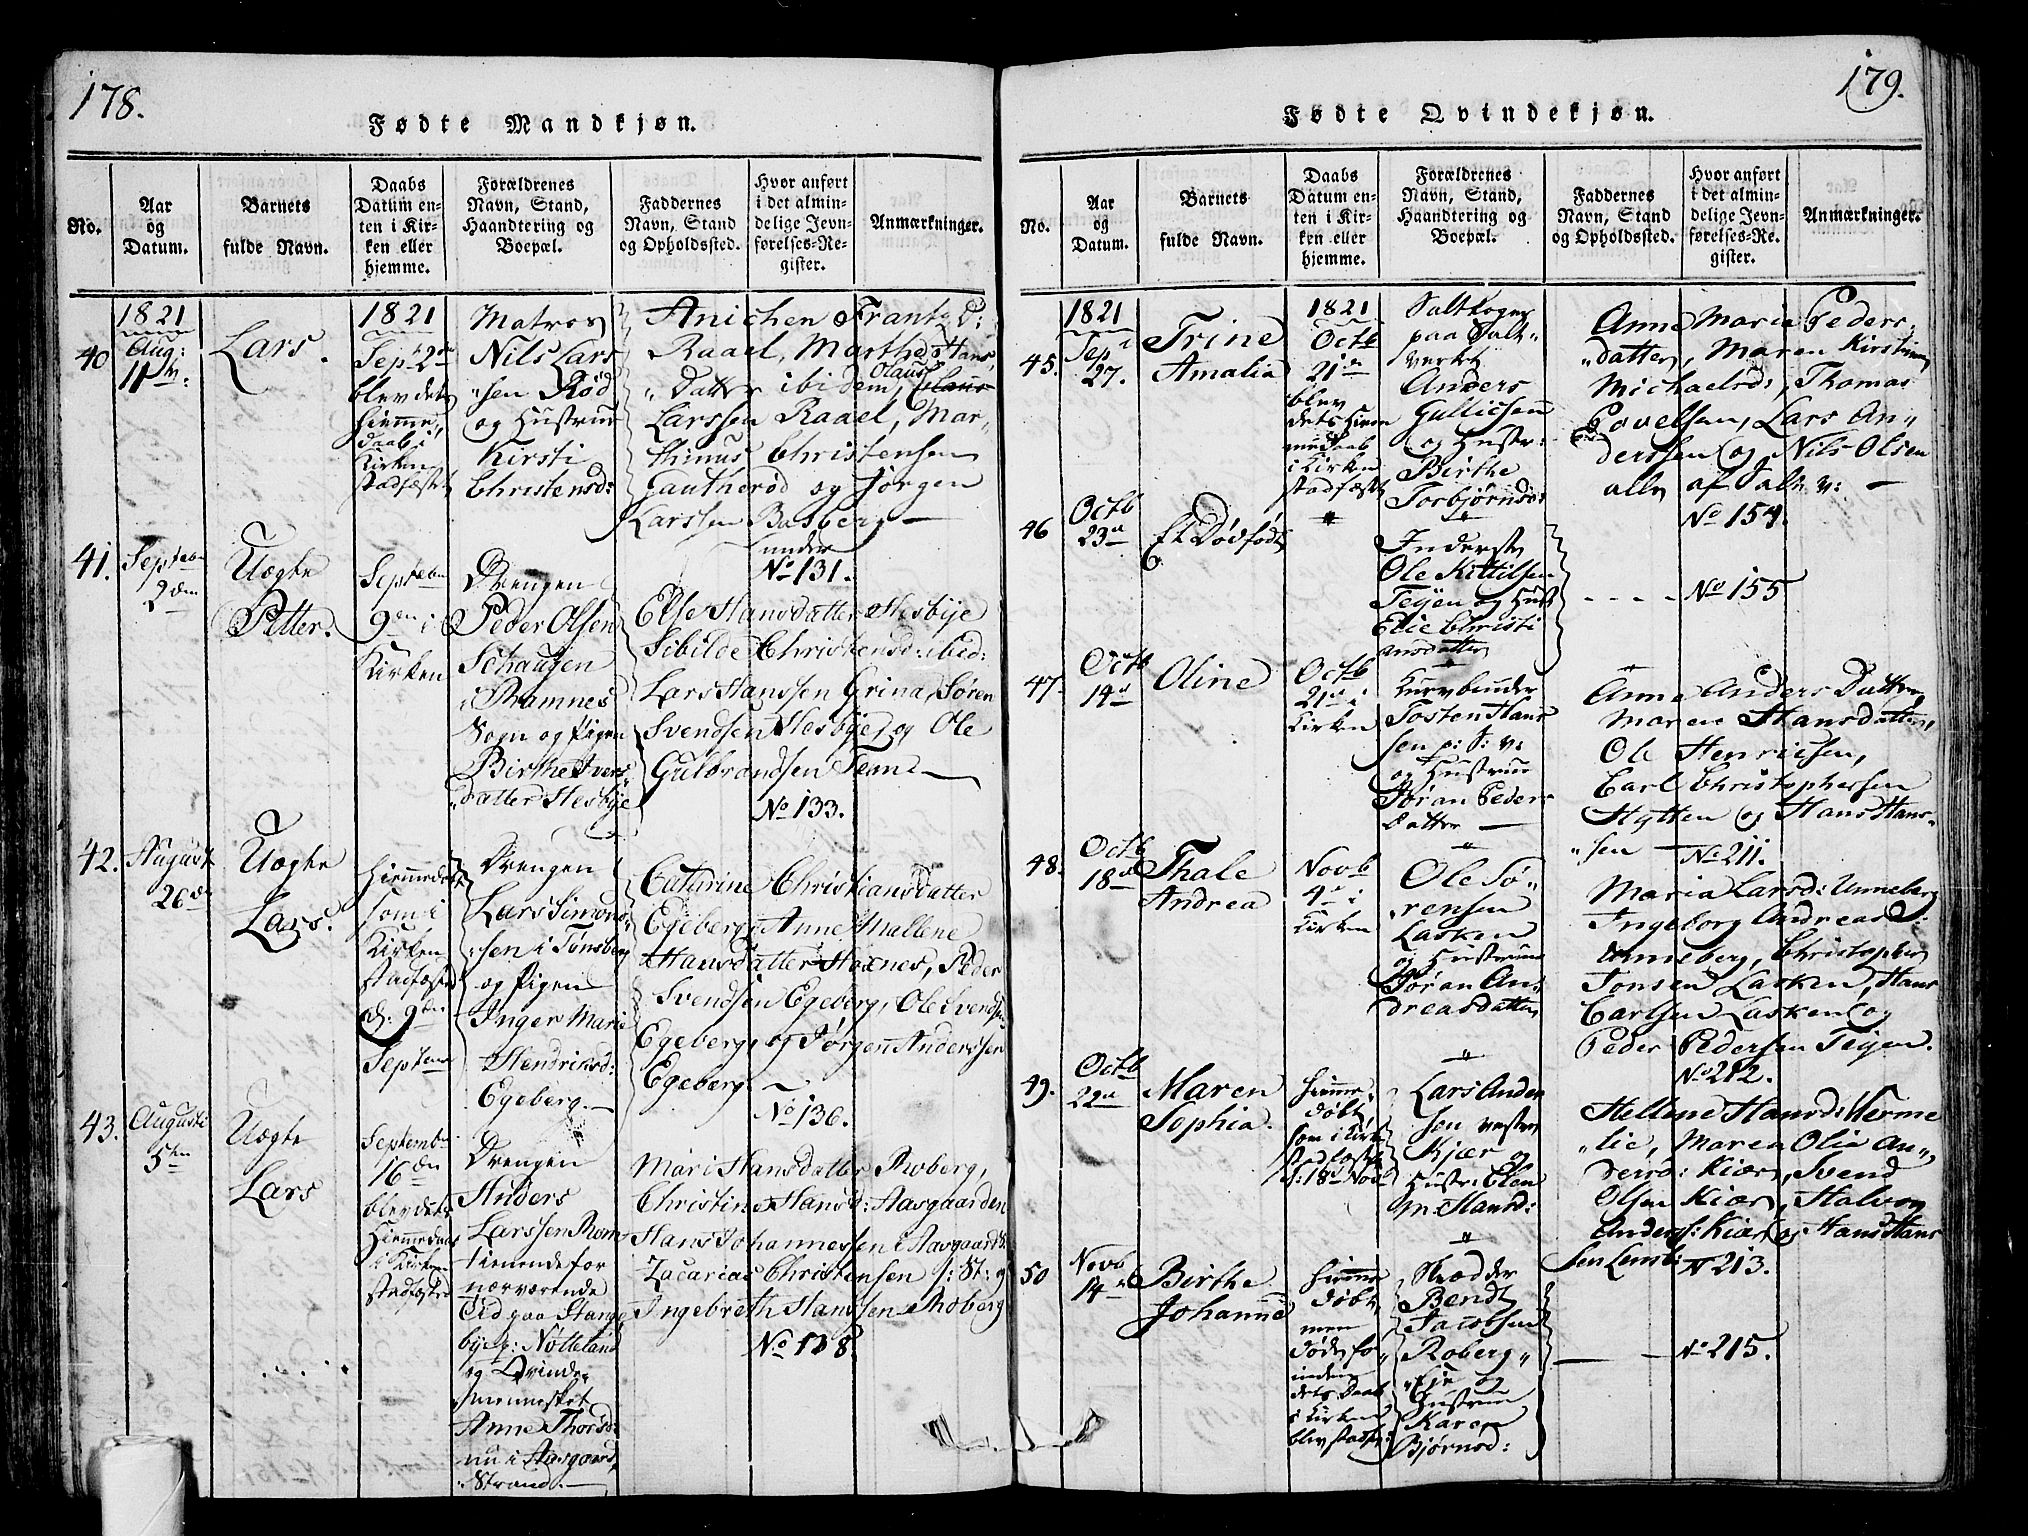 178.
Fødte Mandkjøn.
No.
Aar
og
Datum.
Barnets
fulde Navn.
Daabs
Datum en-
ten i Kir-
ken eller
hjemme.
Forældrenes
Navn, Stand,
Haandtering og
Boepæl.
Faddernes
Navn, Stand
og Opholdssted.
Hvor anført
i det almin-
delige Jevn-
førelses-Re-
gister.
Anmærkninger.
40
1821
Aug:
11
Lars.
1821
Sept 2den
blev dets
Hiemme,
daab i
Kirken
stadfæstet
Matros
Nils Lars
"sen Rød
og Hustrue
Kirsti
Christensd:
Anichen Frantz D:
Raael, Marthe Hans,
"Datter ibidem, Olaus
Larssen Raael, Mar,
thinus Christensen
Gautherød og Jørgen
Larssen Basberg —
under
No 131.
41.
Septebr
2den
Uægte
Petter.
Septebr
9den i
Kirken
Drengen
Peder Olsen
Schaugen
i Ramnes
Sogn og Pigen
Birthe Ivers
"datter Hesbye
Else Hansdatter Hesbye
Sibilde Christensd: ibid:
Lars Hanssen Grina, Søren
Svendsen Hesbye, og Ole
Gulbrandsen Tean —
No 133.
42.
August
26de
Uægte
Lars.
Hiemmedøbt
som i
Kirken
stadfæstet
d: 9den
Septem
Drengen
Lars Simons
:sen i Tønsberg
og Pigen
Inger Marie
Hendrichsd:
Egeberg. —
Catarine Christiansdatter
Egeberg, Anne Mallene
Hansdatter Hoxnes, Peder
Svendsen Egeberg, Ole Svendsen
Egeberg, og Jørgen Anderssen
Egeberg. —
No 136.
43.
Augusti
5ten
Uægte
Lars
Septemb
16den
blev dets
Hiemmedaab
i Kirken
stadfæstet
Drengen
Anders
Larssen Rom
tienende for
nærværende
Tid paa Stange
bye p: Nøtteland
og Qvinde,
mennesket
Anne Thorsd:
nu i Aasgaard
Strand. —
Mari Hansdatter Roberg,
Christine Hansd: Aasgaarden
Hans Johannessen i Aasgaards
Zacarias Christensen /: St: og
Ingebreth Hanssen Roberg
No 138
179.
Fødte Qvindekjøn.
No.
Aar
og
Datum.
Barnets
fulde Navn.
Daabs
Datum en-
ten i Kir-
ken eller
hjemme.
Forældrenes
Navn, Stand,
Haandtering og
Boepæl.
Faddernes
Navn, Stand
og Opholdssted.
Hvor anført
i det almin-
delige Jevn-
førelses-Re-
gister.
Anmærkninger.
45.
1821
Sept
27.
Trine
Amalia
1821
Octb
21de
blev
dets Hiem
medaab
i Kirken
stadfæstet
Saltkoger
paa Salt"
verket
Anders
Gullicsen
og Hustr:
Birthe
Torbjørnsd:
Anne Maria Peders
"datter, Maren Kirstine
Michaelsd:, Thomas
Povelsen, Lars An"
derssen og Nils Olsen
alle af Salt v: —
No 154.
46
Octb
23de
Et Dødfødt
Inderste
Ole Kittilsen
Teyen og Hust
Elie Christi
ansdatter
- - - - No 155
47.
Octb
14de
Oline
Octb
21de i
Kirken
Kurvbinder
Tosten Hans
sen p: S: v:
og Hustrue
Jøran Peders
Datter —
Anne Anders Datter,
Maren Hansdatter,
Ole Henricsen,
Carl Christophersen
Hytten og Hans Hans-
"sen — No 211.
48.
Octb
18de
Thale
Andrea
Novb
4de i
Kirken
Ole Sø"
rensen
Lasken
og Hustrue
Jøran An"
dreasdatter
Maria Larsd: Unneberg
Ingeborg Andreas D:
Unneberg, Christopher
Jonsen Lasken, Hans
Carlsen Lasken og
Peder Pedersen Teyen.
No 212.
49.
Octb
22de
Maren
Sophia.
Hiemme
døbt,
som i Kirke
stadfæstet
d: 18de Novb
Lars Ander
sen vestre
Kjær og
Hustr: Elen
M. Hansd:
Hellene Hansd: Verme
"lie, Maren Olia An"
dersd: Kiær, Svend
Olsen Kiær, Halvor
Anders: Kiær og Hans Hans
sen Lensb: No 213.
50
Novb
14de
Birthe
Johanne
Hiemme
døbt
men
døde fo"
inden
dets Daab
i Kirken
blev stadfæ:
Skrædder
Bendt
Jacobsen
Roberg"
"Eje og
Hustrue
Karen
Bjørnsd:
No 215.